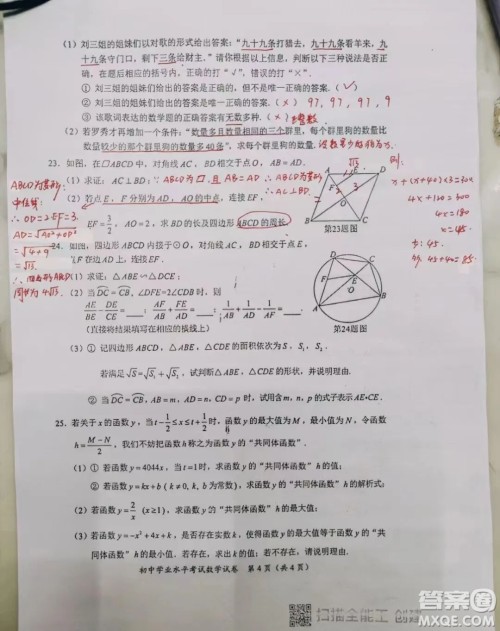 (1) 刘三姐的姐妹们以对歌的形式给出答案:“九十九条打猎去,九十九条看羊来,九
十九条守门口,剩下三条给财主.”请你根据以上信息,判断以下三种说法是否正
确,在题后相应的括号内,正确的打“√”,错误的打“×”.
① 刘三姐的姐妹们给出的答案是正确的,但不是唯一正确的答案.(√)
② 刘三姐的姐妹们给出的答案是唯一正确的答案.(×) 97, 97, 97, 9
③ 该歌词表达的数学题的正确答案有无数多种.(×)
(2) 若罗秀才再增加一个条件:“数量多且数量相同的三个群里,每个群里狗的数量比
数量较少的那个群里狗的数量多40条”,求每个群里狗的数量.
23. 如图,在□ABCD中,对角线AC、BD相交于点O,AB=AD.
(1) 求证:AC⊥BD;
(2) 若点E、F分别为AD、AO的中点,连接EF,
EF=3/2,AO=2,求BD的长及四边形ABCD的周长.
第23题图
x+(x+40)×3=300
4x+120=300
x=45
∴OD=2EF=3.
=√13.
24. 如图,四边形ABCD内接于⊙O,对角线AC、BD相交于点E,
点F在边AD上,连接EF.
(1) 求证:△ABE∽△DCE;
(2) 当DC=CB,∠DFE=2∠CDB时,则
AE/BE − DE/CE = ___, AF/AB + FE/AD = ___, 1/AB + 1/AD − 1/AF = ___.
(直接将结果填写在相应的横线上)
第24题图
(3) ① 记四边形ABCD,△ABE,△CDE的面积依次为S,S₁,S₂.
若满足√S=√S₁+√S₂,试判断△ABE,△CDE的形状,并说明理由.
② 当DC=CB,AB=m,AD=n,CD=p时,试用含m,n,p的式子表示AE·CE.
25. 若关于x的函数y,当t−1/2≤x≤t+1/2时,函数y的最大值为M,最小值为N,令函数
h=(M−N)/2,我们不妨把函数h称之为函数y的“共同体函数”.
(1) ① 若函数y=4044x,当t=1时,求函数y的“共同体函数”h的值;
② 若函数y=kx+b(k≠0,k,b为常数),求函数y的“共同体函数”h的解析式;
(2) 若函数y=2/x(x≥1),求函数y的“共同体函数”h的最大值;
(3) 若函数y=−x²+4x+k,是否存在实数k,使得函数y的最大值等于函数y的“共
同体函数”h的最小值.若存在,求出k的值;若不存在,请说明理由.
初中学业水平考试数学试卷 第4页(共4页)
扫描全能王 创建
答案圈
MXQE.COM